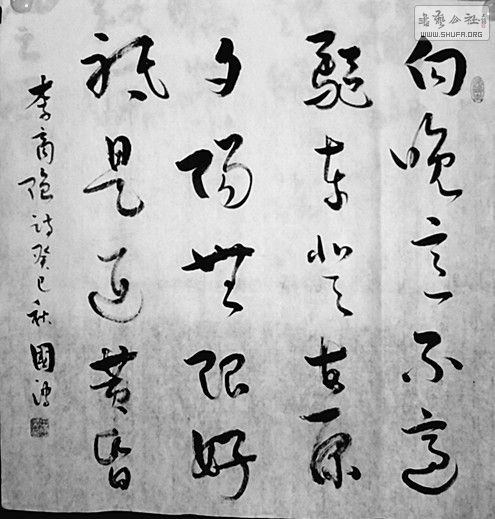 向晚意不適
驅車登古原
夕陽無限好
祇是近黃昏
李商隱詩癸巳秋國
書藝公社
WWW.SHUFA.ORG